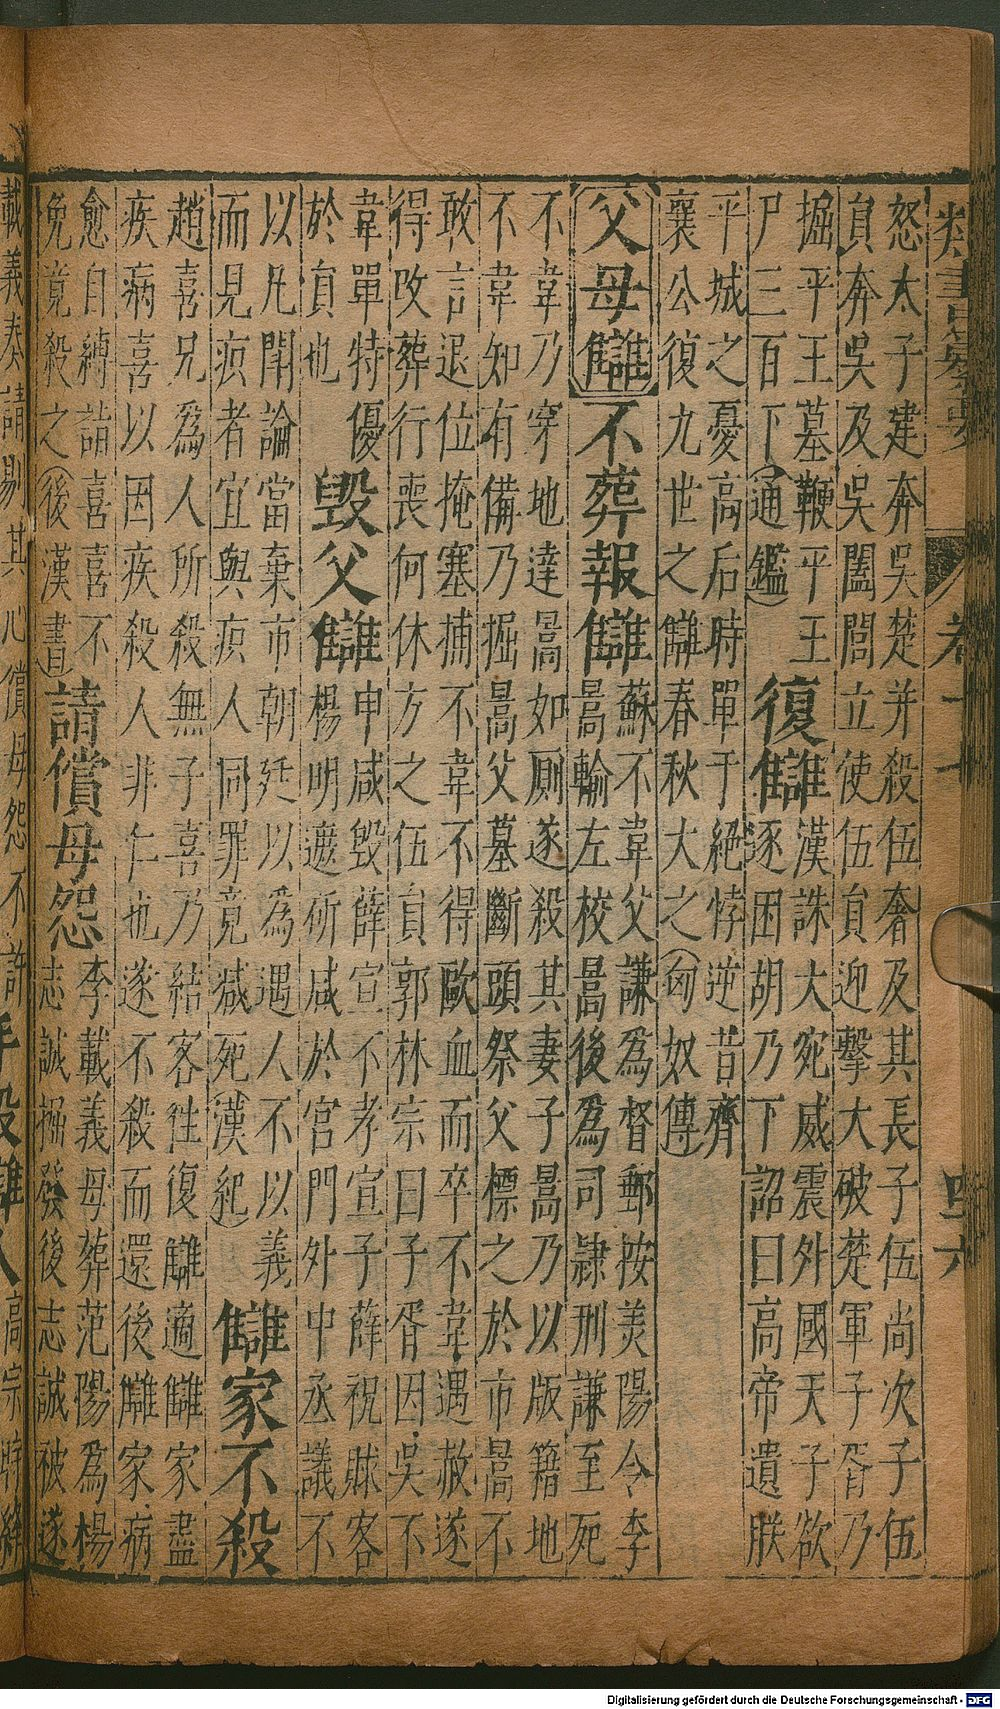 類書纂要 卷十七 四六
怒太子建奔吳楚并殺伍奢及其長子伍尚次子伍
員奔吳及吳闔閭立使伍員迎擊大破楚軍子胥乃
掘平王墓鞭平王
尸三百下(通鑑)
復讎
漢誅大宛威震外國天子欲
逐困胡乃下詔曰高帝遺朕
平城之憂高后時單于絕悖逆昔齊
襄公復九世之讎春秋大之(匈奴傳)
父母讎
不葬報讎
蘇不韋父謙為督郵按美陽令李
暠輸左校暠後為司隷刑謙至死
不韋乃穿地達暠如厠遂殺其妻子暠乃以版籍地
不韋知有備乃掘暠父墓斷頭祭父標之於市暠不
敢言退位掩塞捕不韋不得歐血而卒不韋遇赦遂
得改葬行喪何休方之伍員郭林宗曰子胥因吳不
韋單特優
於員也
毀父讎
申咸毀薛宣不孝宣子薛祝賕客
楊明遮斫咸於宮門外中丞議不
以凡鬥論當棄市朝廷以為遇人不以義
而見疻者宜與痏人同罪竟減死(漢紀)
讎家不殺
趙喜兄為人所殺無子喜乃結客往復讎適讎家盡
疾病喜以因疾殺人非仁也遂不殺而還後讎家病
愈自縛詣喜喜不
免竟殺之(後漢書)
請償母怨
李載義母葬范陽為楊
志誠掘發後志誠被逐
載義奏請剔其心償母怨不許
手殺讎人
高宗時絳
Digitalisierung gefördert durch die Deutsche Forschungsgemeinschaft - DFG